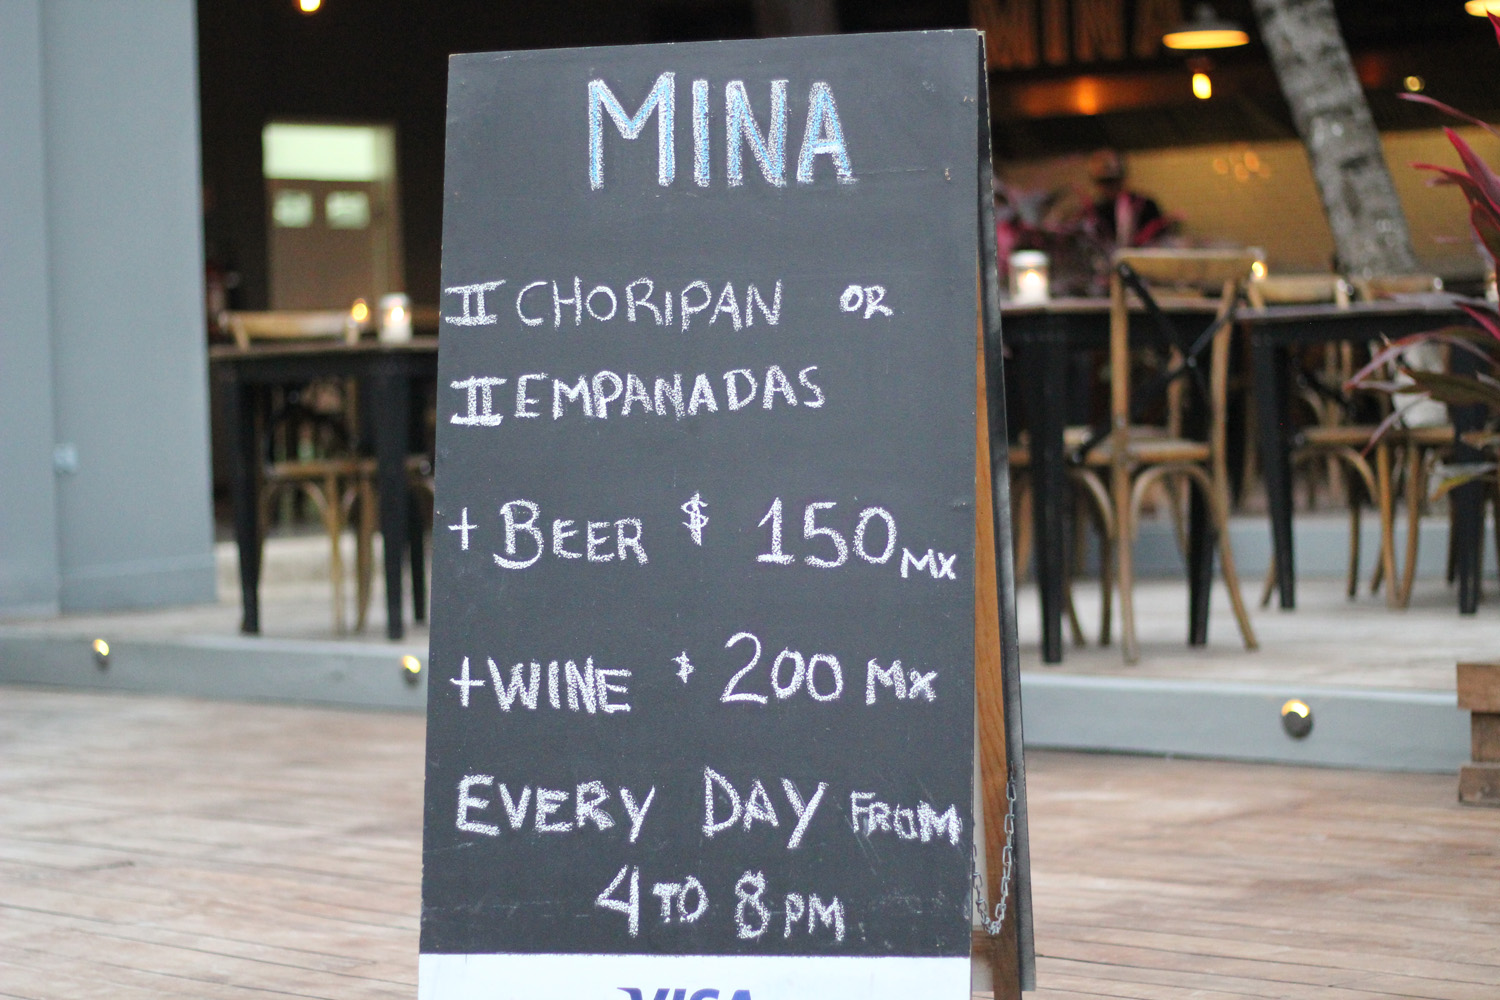 MINA
MINA
II CHORIPAN OR
II EMPANADAS
+ BEER $ 150 MX
+ WINE $ 200 MX
EVERY DAY FROM
4 TO 8 PM
VISA